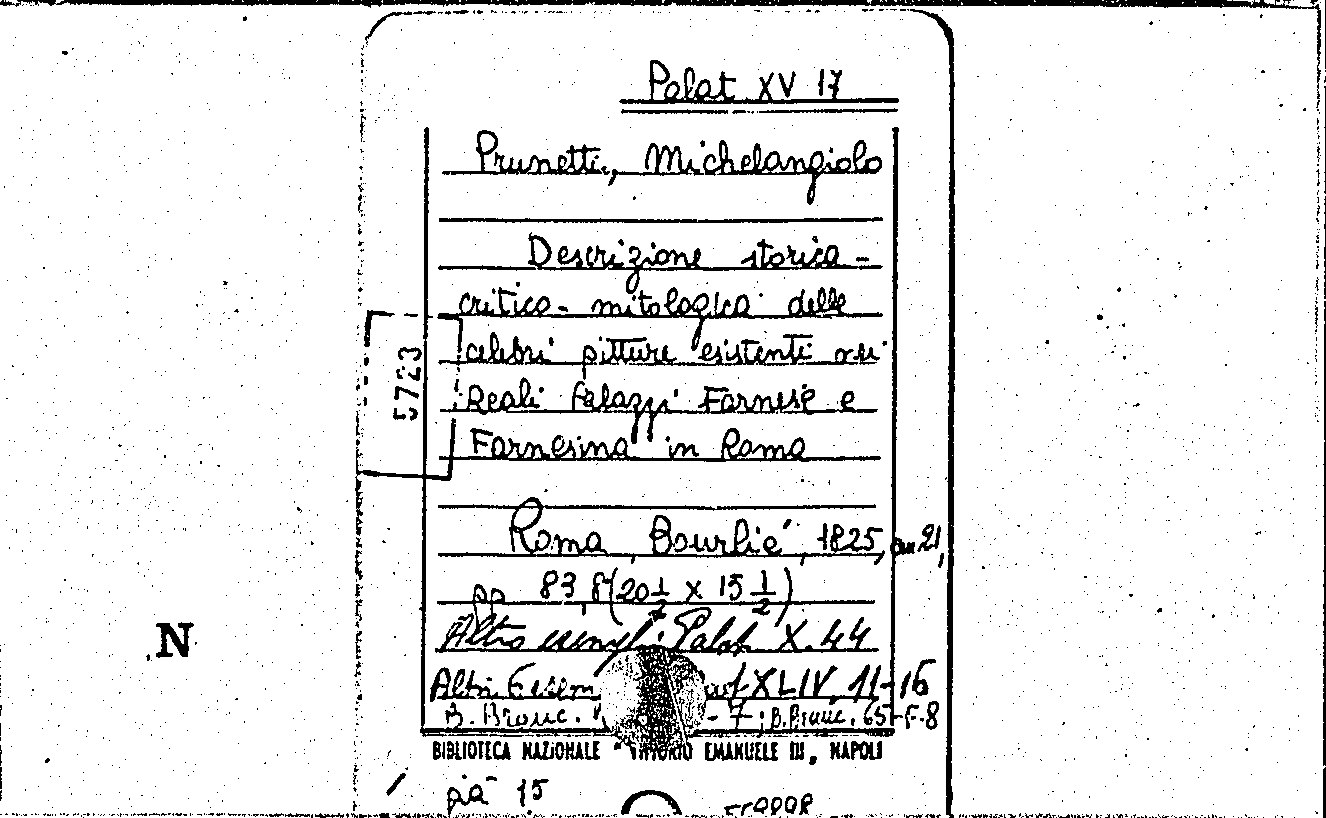 Palat XV 17
Prunetti, Michelangiolo
Descrizione storica-
critico-mitologica delle
celebri pitture esistenti nei
Reali Palazzi Farnese e
Farnesina in Roma
5723
Roma, Bourlié, 1825, 21,
pp 83,8 (20 1/2 x 15 1/2)
Altro esempl: Palat. X.44
N
Altri 6 esem XLIV, 11-16
B. Branc. - 7; B. Branc. 65-F-8
BIBLIOTECA NAZIONALE "VITTORIO EMANUELE III, NAPOLI
già 15